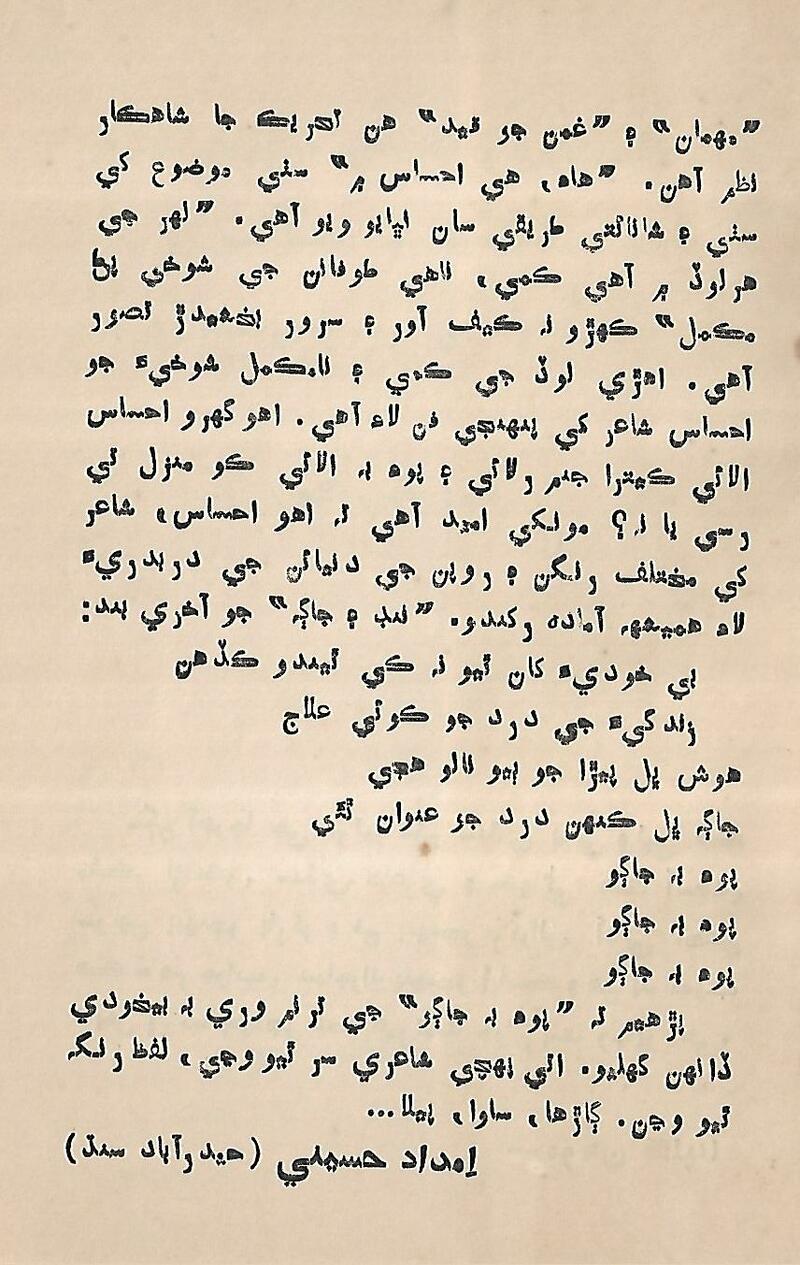 ”مهمان“ ۽ ”غمن جو قيد“ هن تحريڪ جا شاهڪار
نظم آهن. ”هاءِ، هي احساس ۾“ سٺي موضوع کي
سٺي ۽ شائائتي طريقي سان اپايو ويو آهي. ”لهر جي
هر لوڏ ۾ آهي ڪمي، ناهي طوفانن جي شوخي پڻ
مڪمل“ ڪهڙو نہ ڪيف آور ۽ سرور بخشيندڙ تصور
آهي. اهڙي لوڏ جي ڪمي ۽ نامڪمل شوخيءَ جو
احساس شاعر کي پنهنجي فن لاءِ آهي. اهو گهرو احساس
الائي ڪيترا جنم رلائي ۽ پوءِ بہ الائي ڪو منزل تي
رسي يا نہ؟ مونکي اميد آهي تہ اهو احساس، شاعر
کي مختلف رنگن ۽ روپن جي دنيائن جي دربدريءَ
لاءِ هميشہ آماده رکندو. ”ننڊ ۽ جاڳہ“ جو آخري بند:
بي خوديءَ کان ٿيو نہ ڪي ٿيندو ڪڏهن
زندگيءَ جي درد جو ڪوئي علاج
هوش ڀل پيڙا جو ٻيو نالو هجي
جاڳہ ڀل ڪنهن درد جو عنوان ٿئي
پوءِ بہ جاڳو
پوءِ بہ جاڳو
پوءِ بہ جاڳو
پڙهيم تہ ”پوءِ بہ جاڳو“ جي ترنم وري بہ بيخودي
ڏانهن گهليو. ائي پهچي شاعري سر ٿيو وڃي، لفظ رنگہ
ٿيو وڃن. ڳاڙها، ساوا، پيلا...
امداد حسيني (حيدرآباد سنڌ)